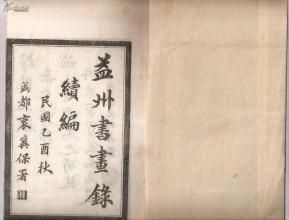 益州書畫錄
續編
民國乙酉秋
成都裴冀保署